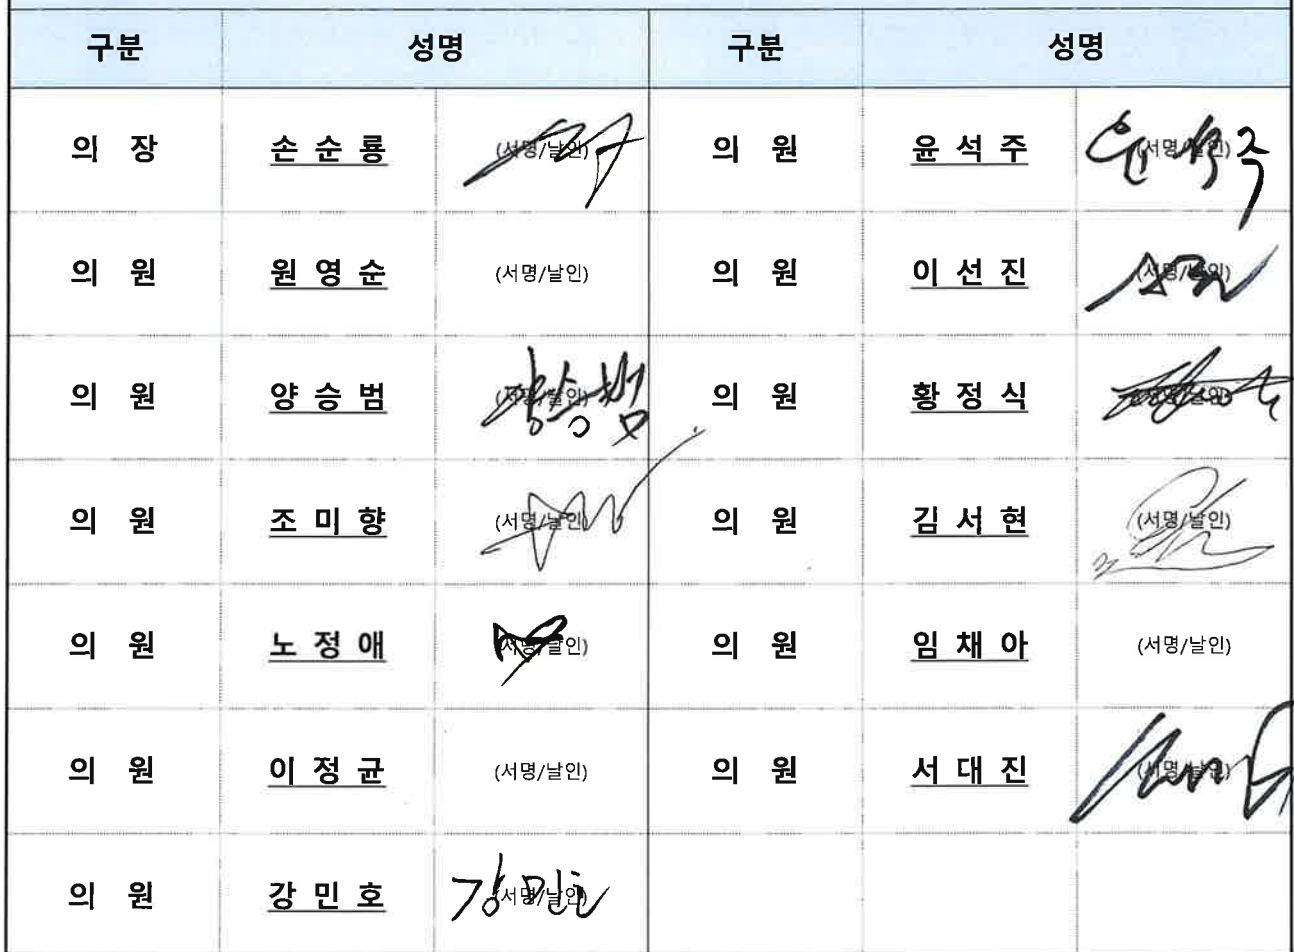 구분 성명 구분 성명
의 장 손 순 룡 (서명/날인) 의 원 윤 석 주 (서명/날인) 윤석주
의 원 원 영 순 (서명/날인) 의 원 이 선 진 (서명/날인)
의 원 양 승 범 (서명/날인) 양승범 의 원 황 정 식 (서명/날인)
의 원 조 미 향 (서명/날인) 의 원 김 서 현 (서명/날인)
의 원 노 정 애 (서명/날인) 의 원 임 채 아 (서명/날인)
의 원 이 정 균 (서명/날인) 의 원 서 대 진 (서명/날인)
의 원 강 민 호 (서명/날인) 강민호